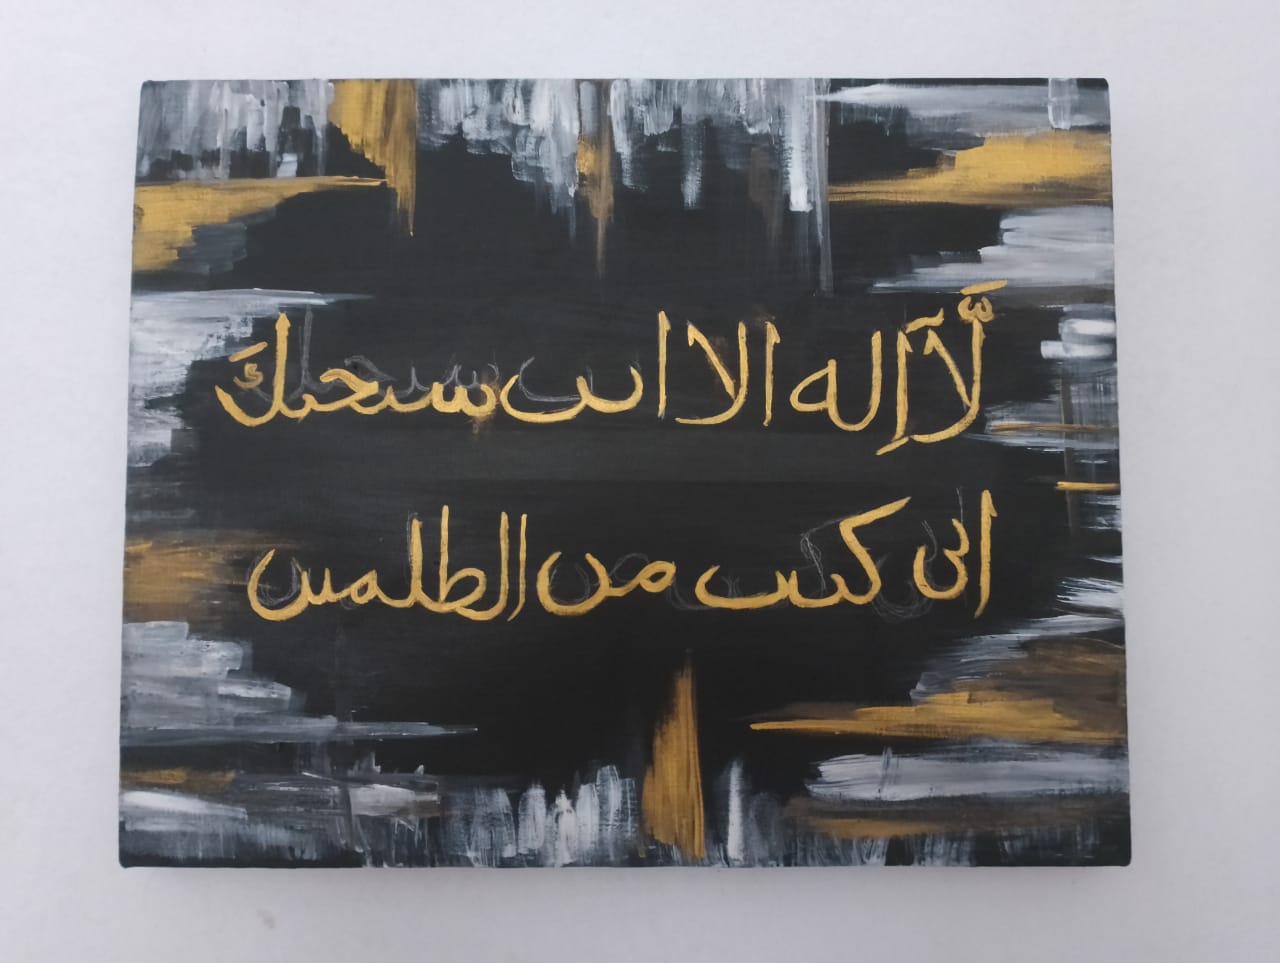 لَّآ إِله الا انت سبحنكَ
انى كنت من الظلمين